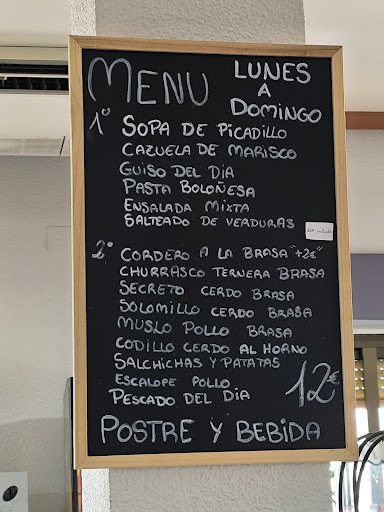 MENU
LUNES
A
DOMINGO
1º SOPA DE PICADILLO
CAZUELA DE MARISCO
GUISO DEL DIA
PASTA BOLOÑESA
ENSALADA MIXTA
SALTEADO DE VERDURAS
2º CORDERO A LA BRASA "+2€"
CHURRASCO TERNERA BRASA
SECRETO CERDO BRASA
SOLOMILLO CERDO BRASA
MUSLO POLLO BRASA
CODILLO CERDO AL HORNO
SALCHICHAS Y PATATAS
ESCALOPE POLLO
PESCADO DEL DIA
12€
POSTRE Y BEBIDA